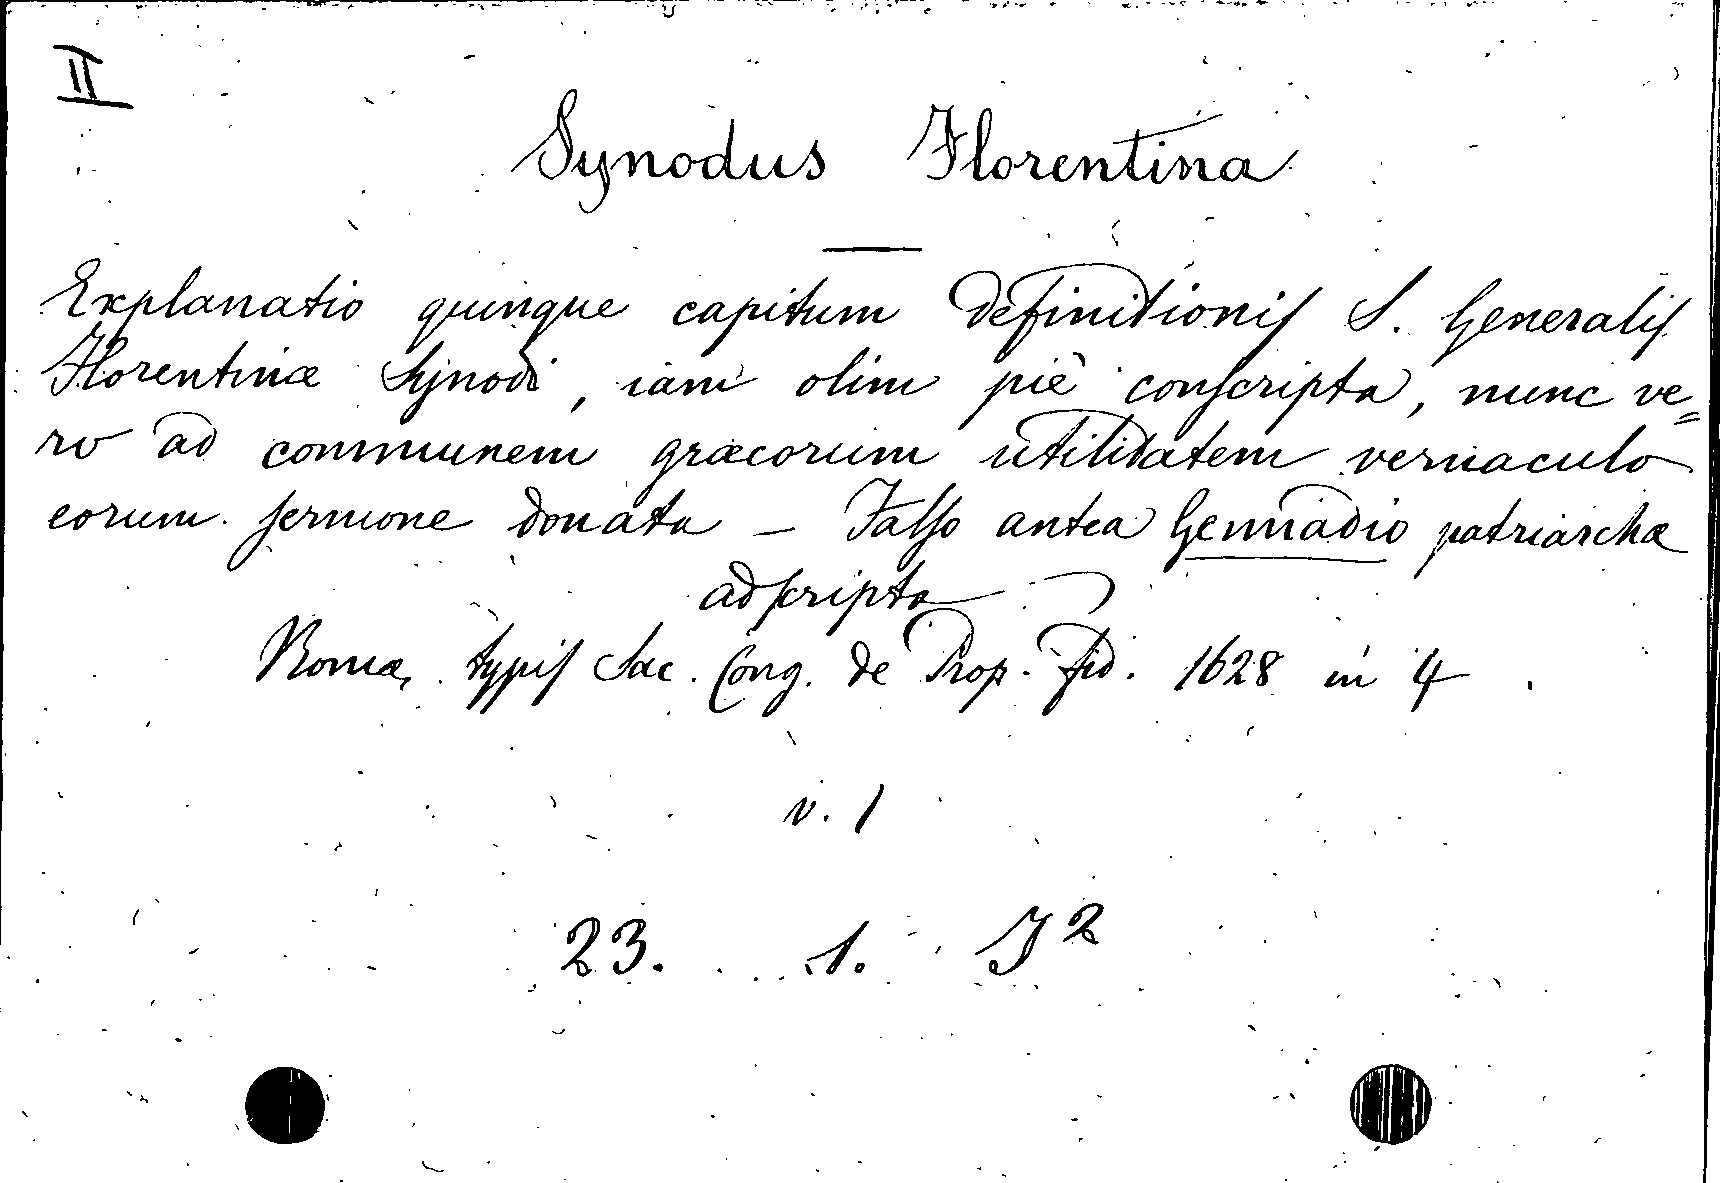 II
Synodus Florentina
Explanatio quinque capitum definitionis S. Generalis
Florentinæ Synodi, iam olim piè conscripta, nunc ve=
ro ad communem græcorum utilitatem vernaculo
eorum sermone donata — Falso antea Gennadio patriarchæ
adscripta
Romæ, typis Sac. Cong. de Prop. Fid. 1628 in 4.
v. 1
23. 1. J 2